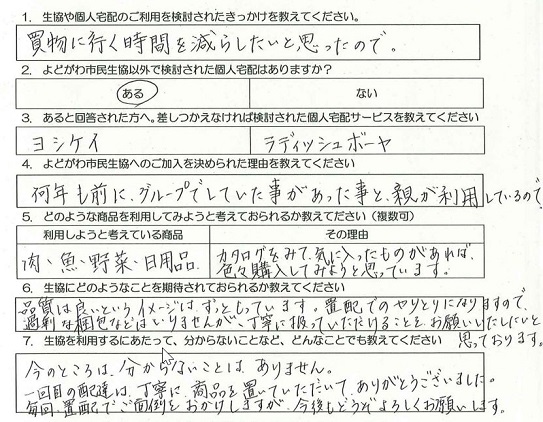 1. 生協や個人宅配のご利用を検討されたきっかけを教えてください。
買物に行く時間を減らしたいと思ったので。
2. よどがわ市民生協以外で検討された個人宅配はありますか?
ある ない
3. あると回答された方へ。差しつかえなければ検討された個人宅配サービスを教えてください
ヨシケイ ラディッシュボーヤ
4. よどがわ市民生協へのご加入を決められた理由を教えてください
何年も前に、グループでしていた事があった事と、親が利用しているので
5. どのような商品を利用してみようと考えておられるか教えてください(複数可)
利用しようと考えている商品 その理由
肉、魚、野菜、日用品 カタログをみて、気に入ったものがあれば、
色々購入してみようと思っています。
6. 生協にどのようなことを期待されておられるか教えてください
品質は良いという、イメージは、ずっともっています。置配でのやりとりになりますので、
過剰な梱包などはいりませんが、丁寧に扱っていただけることをお願いいたしたいと
思っております。
7. 生協を利用するにあたって、分からないことなど、どんなことでも教えてください
今のところは、分からないことは、ありません。
一回目の配達は、丁寧に、商品を置いていただいて、ありがとうございました。
毎回、置配でご面倒をおかけしますが、今後もどうぞよろしくお願いします。